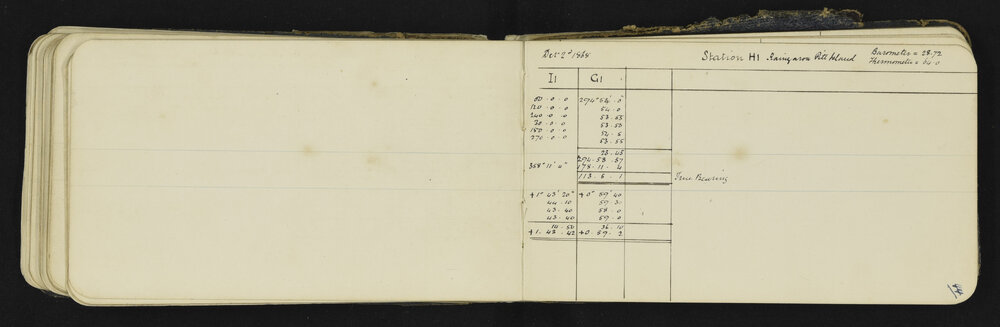 Decr 2d 1868 Station H1 Rangaroa Pitt Island Barometer = 28.72
Thermometer = 64.0
I1 G1
60 . 0 . 0 294° 54' 0"
120 . 0 . 0 54 . 0
240 . 0 . 0 53 . 55
30 . 0 . 0 53 . 50
150 . 0 . 0 54 . 5
270 . 0 . 0 53 . 55
23 . 45
294 . 53 . 57
358° 11' 4" 178 . 11 . 4
113 . 5 . 1 True Bearing
+1° 43' 20" +0° 59' 40
44 . 10 59 . 30
43 . 40 58 . 0
43 . 40 59 . 0
14 . 50 36 . 10
+1 . 43 . 42 +0 . 59 . 2